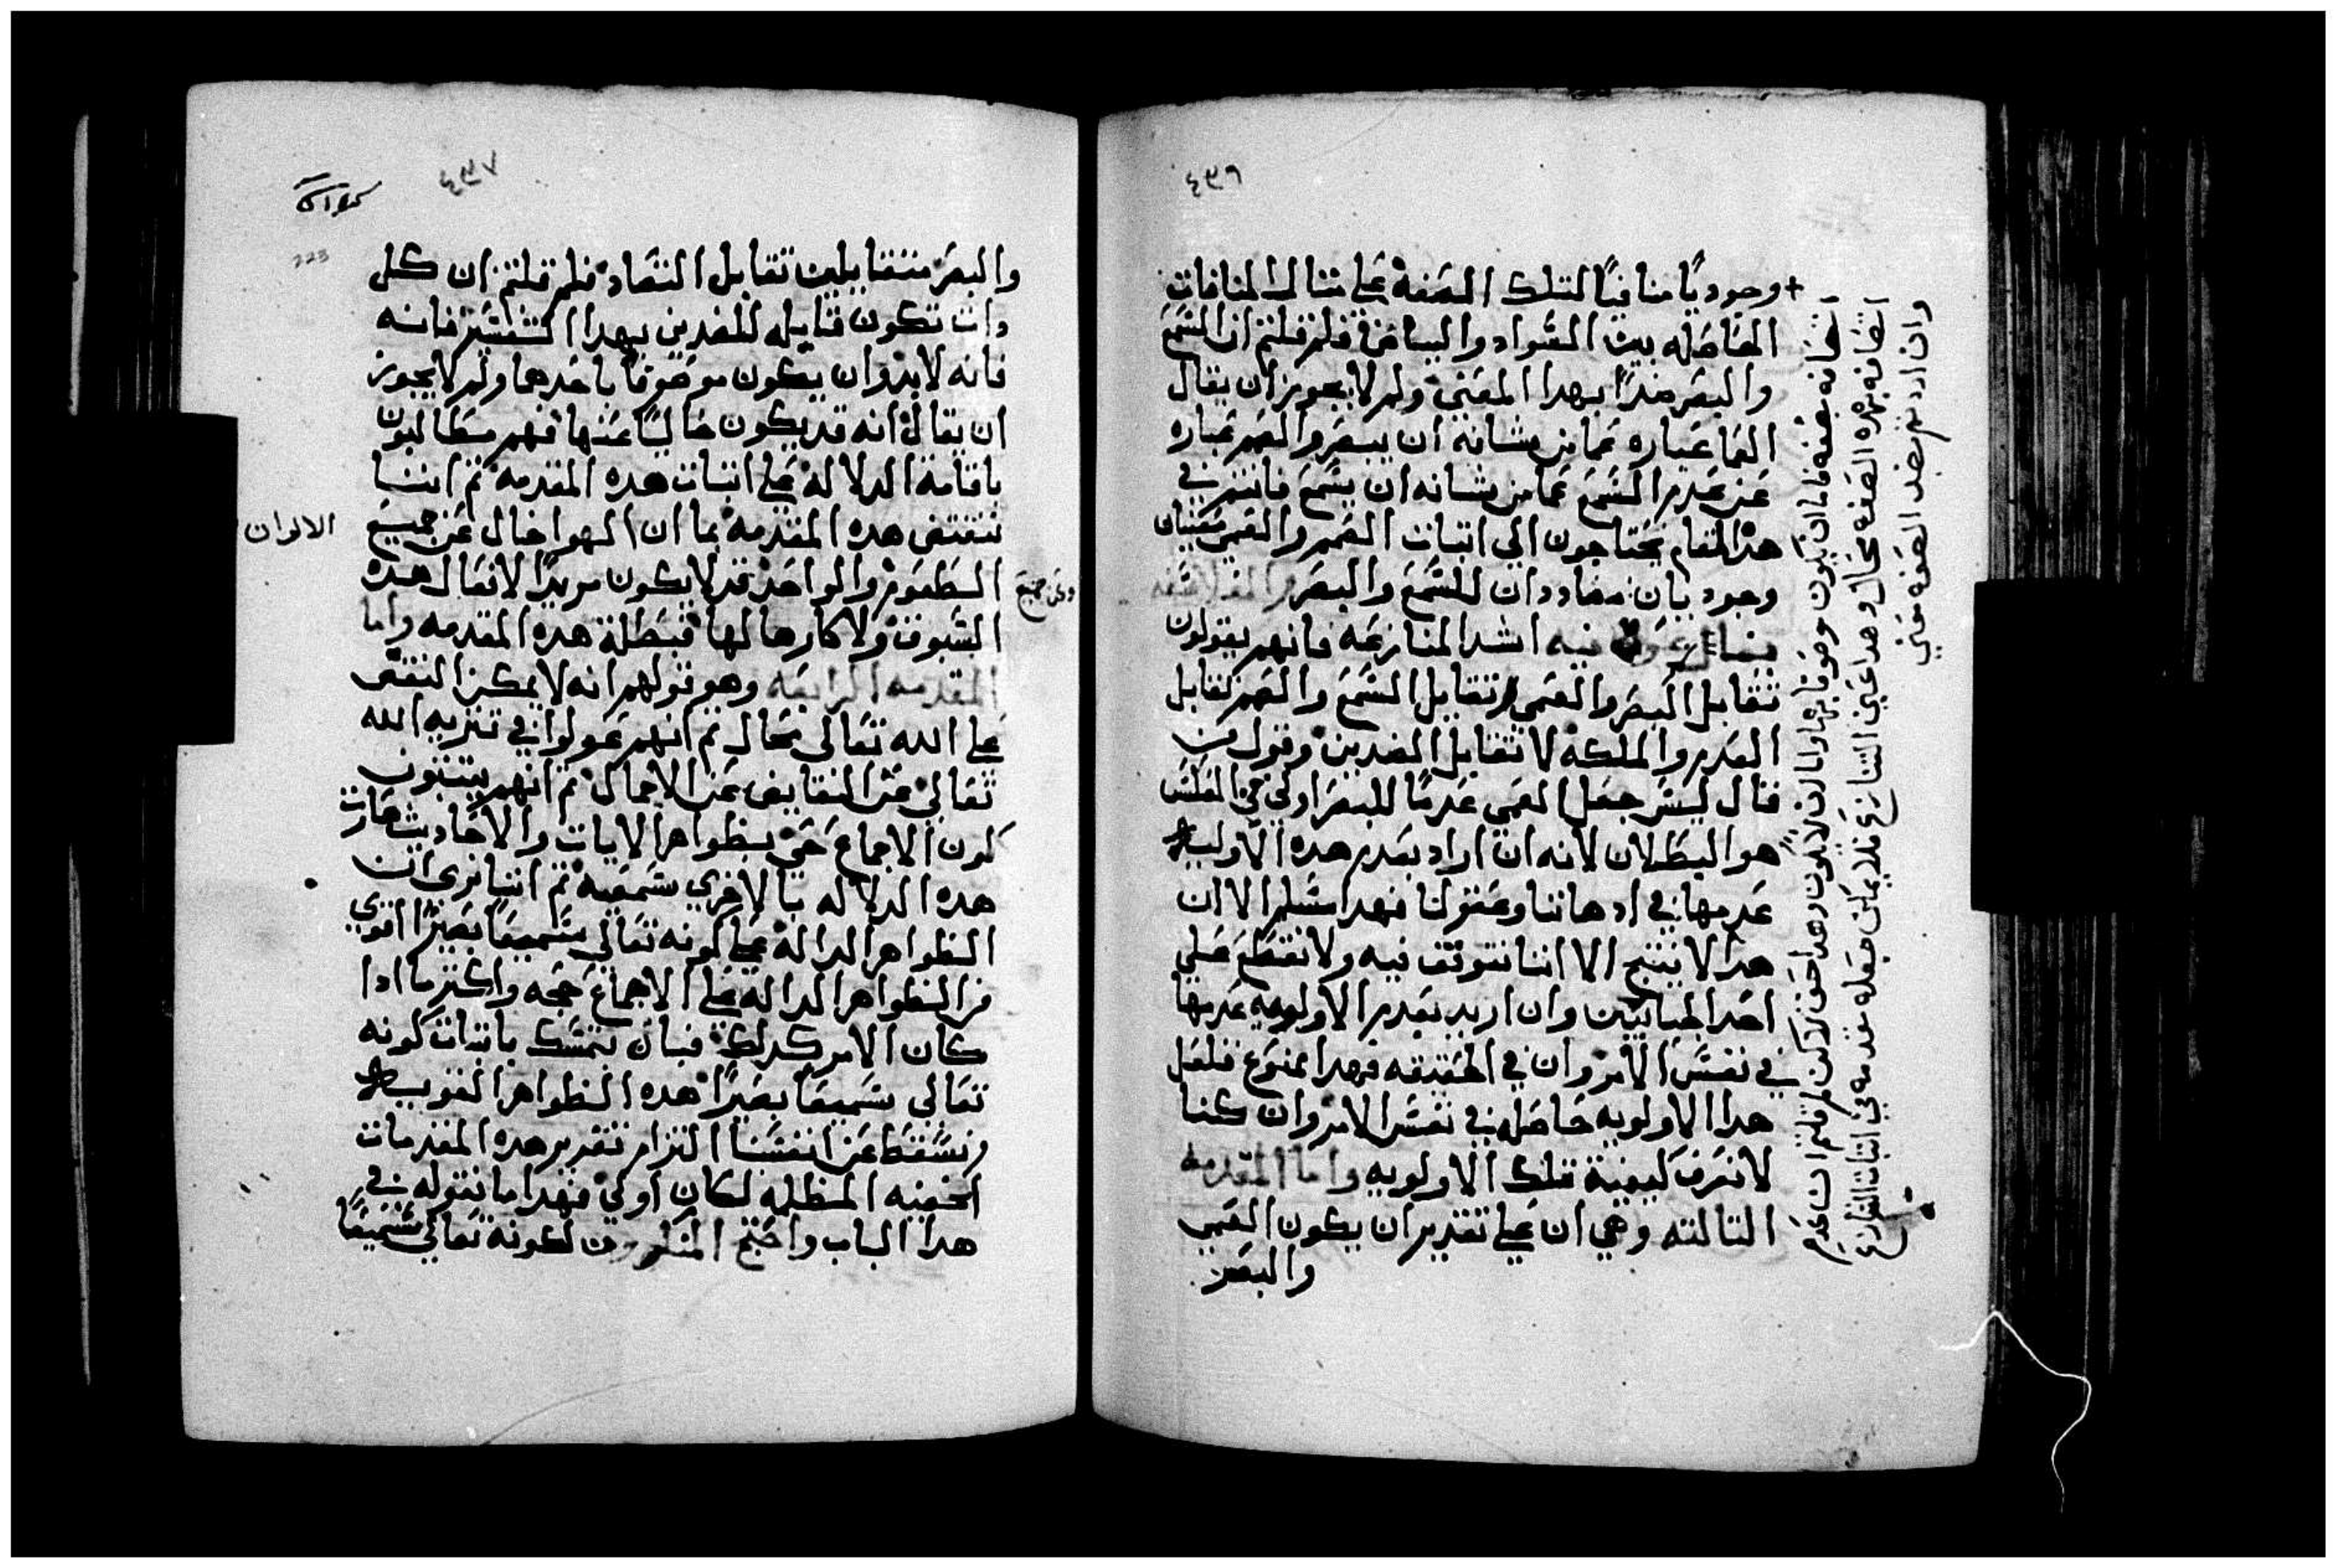 ٤٣٦
+ وجوديًا منافيًا لتلك الصفة علي مثال المنافات
الحاصله بين السواد والبياض فلم قلتم ان السمع
والبصر ضدًا بهدا المعني ولم لا يجوز ان يقال
العما عباره عما من شانه ان يبصر والصمم عباره
عن عدم السمع عما من شانه ان يسمع فانتم في
هدا المقام تحتاجون الي اتبات الصمم والعمي معنيان
وجوديان مضاددان للسمع والبصر
فيه اشد المنازعه فانهم يقولون
تقابل البصر والعمي وتقابل السمع والصمم تقابل
العدم والملكه لا تقابل الضدين وقول من
قال ليس جعل العمي عدمًا للبصر اولي من العكس
هو البطلان لانه ان اراد بعدم هده الاولويه
عدمها في ادهاننا وعقولنا فهدا مسلم الا ان
هدا لا ينتج الا اننا نتوقف فيه ولا نقطع علي
احد الجانبين وان اريد بعدم الاولويه عدمها
في نفس الامر وان في الحقيقه فهدا ممنوع فلعل
هدا الاولويه حاصله في نفس الامر وان كنا
لا نعرف كيفية تلك الاولويه واما المقدمه
التالته وهي ان علي تقدير ان يكون العمي
والبصر
وان اردتم بضد الصفه معني
اتصافه بهده الصفه محال وهدا عين التنازع فلا يمكن جعله مقدمه في اتبات التنازع
٤٣٧
223
والبصر متقابلين تقابل التضاد فلم قلتم ان كل
دات تكون قابله للضدين بهدا التفسير فانه
فانه لا بد وان يكون موصوفًا باحدهما ولم لا يجوز
ان يقال انه قد يكون خاليًا عنها فهم مطالبون
باقامة الدلاله علي اتبات هده المقدمه تم اننا
ننقض هده المقدمه بما ان الهوا خال عن جميع
الالوان
وعن جميع
الطعوم والواحد قد لا يكون مريدًا لافعال هده
السوق ولا كارها لها فبطلة هده المقدمه واما
المقدمه الرابعه وهو قولهم انه لا يمكن النقص
علي الله تعالي محال تم انهم عولوا في تنزيه الله
تعالي عن النقايص عن الاجماع تم انهم يتبتون
كون الاجماع حق بظواهر الايات والاحاديث فصارت
هده الدلاله بالاخري سمعيه تم اننا نري ان
الظواهر الداله علي كونه تعالي سميعًا بصيرًا اقوي
من الظواهر الداله علي الاجماع حجه واكتر ما ادا
كان الامر كدلك فبان نتمسك باتبات كونه
تعالي سميعًا بصيرًا هده الظواهر القويه
ونسقط عن انفسنا التزام تقدير هده المقدمات
الخفيه المظلمه لكان اولي فهدا ما نقوله في
هدا الباب واحتج المنكرون لكونه تعالي سميعًا